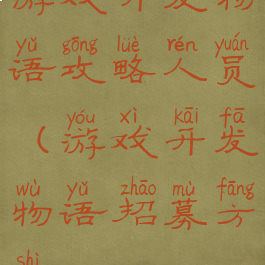 游戏开发物
yǔ gōng lüè rén yuán
语攻略人员
yóu xì kāi fā
（游戏开发
wù yǔ zhāo mù fāng
物语招募方
shì